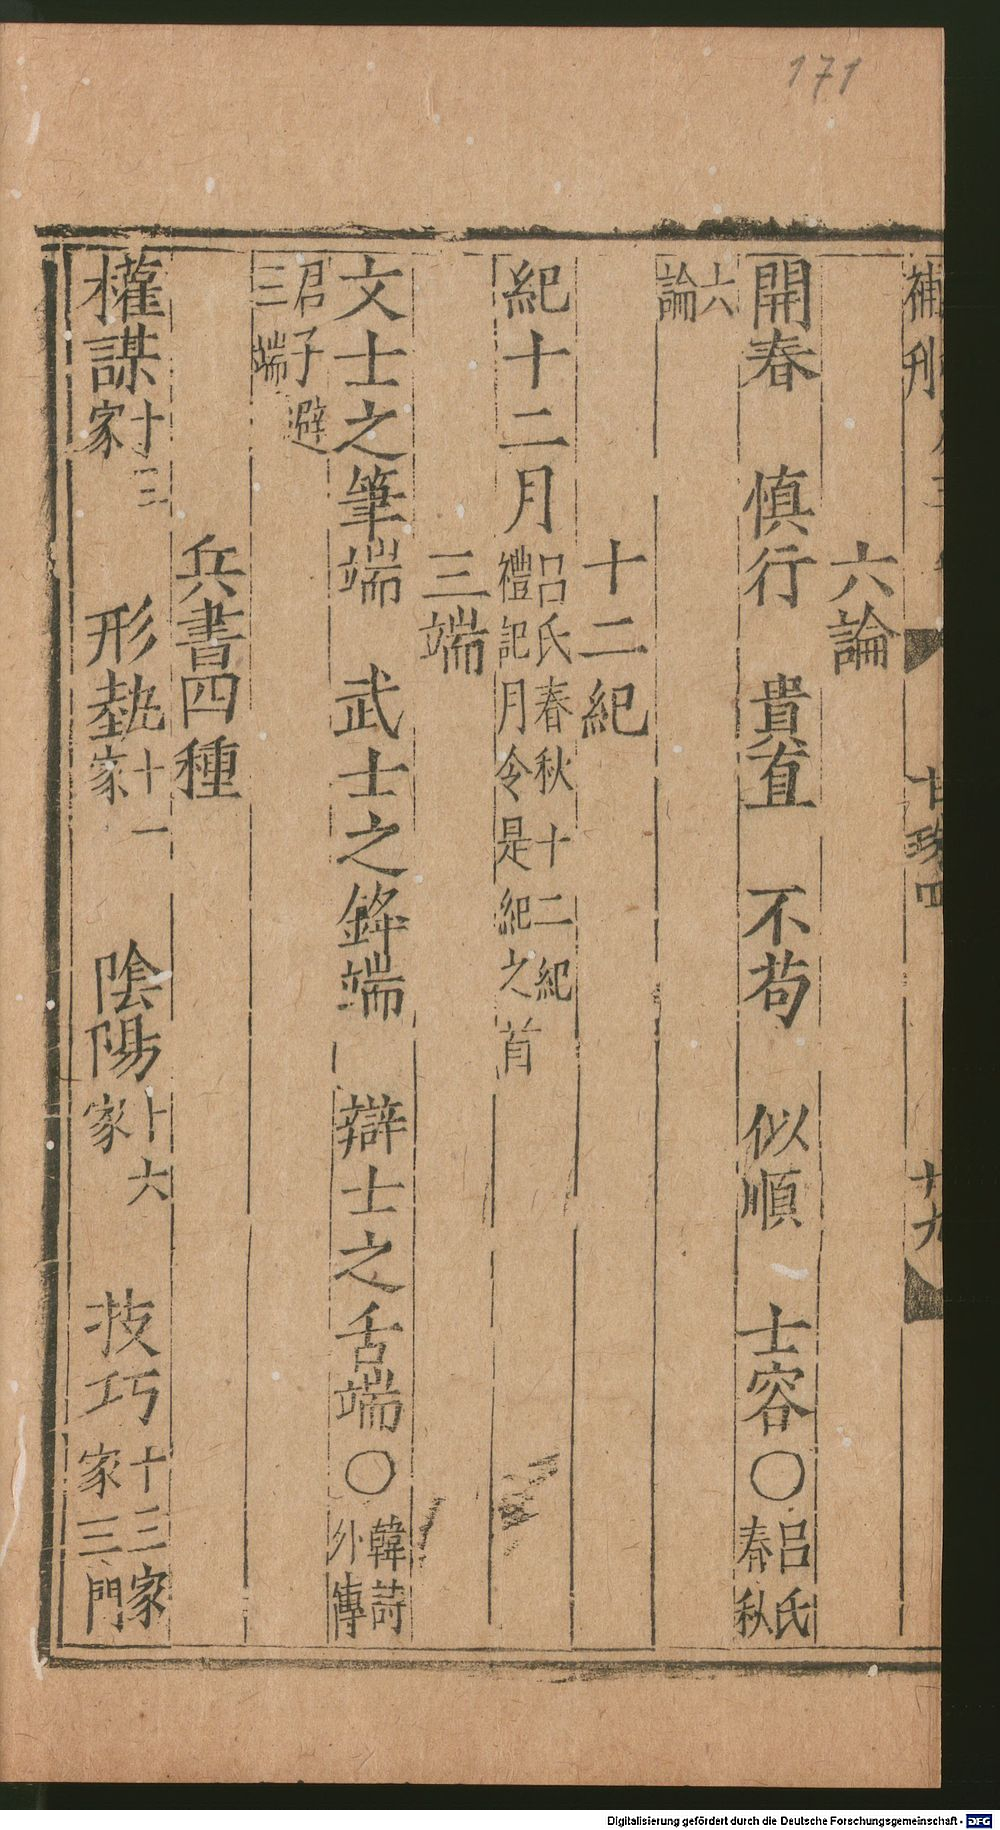 171
補刋
廿九
六論
開春　慎行　貴直　不苟　似順　士容〇呂氏春秋
六論
十二紀
紀十二月呂氏春秋十二紀禮記月令是紀之首
三端
文士之筆端　武士之鋒端　辯士之舌端〇韓詩外傳
君子避三端
兵書四種
權謀十三家　形埶十一家　陰陽十六家　技巧十三家家三門
Digitalisierung gefördert durch die Deutsche Forschungsgemeinschaft - DFG